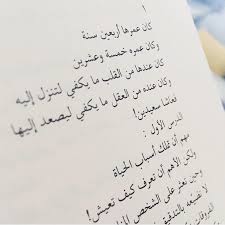 ١
كان عمرها أربعين سنة
وكان عمره خمسة وعشرين
كان عندها من القلب ما يكفي لتنزل إليه
وكان عنده من العقل ما يكفي ليصعد إليها
فعاشا سعيدين!
الدرس الأول:
مهم أن تملك أسباب الحياة
ولكن الأهم أن تعرف كيف تعيش!
وحين تعثر على الشخص
لا تضيعه بالتدقيق